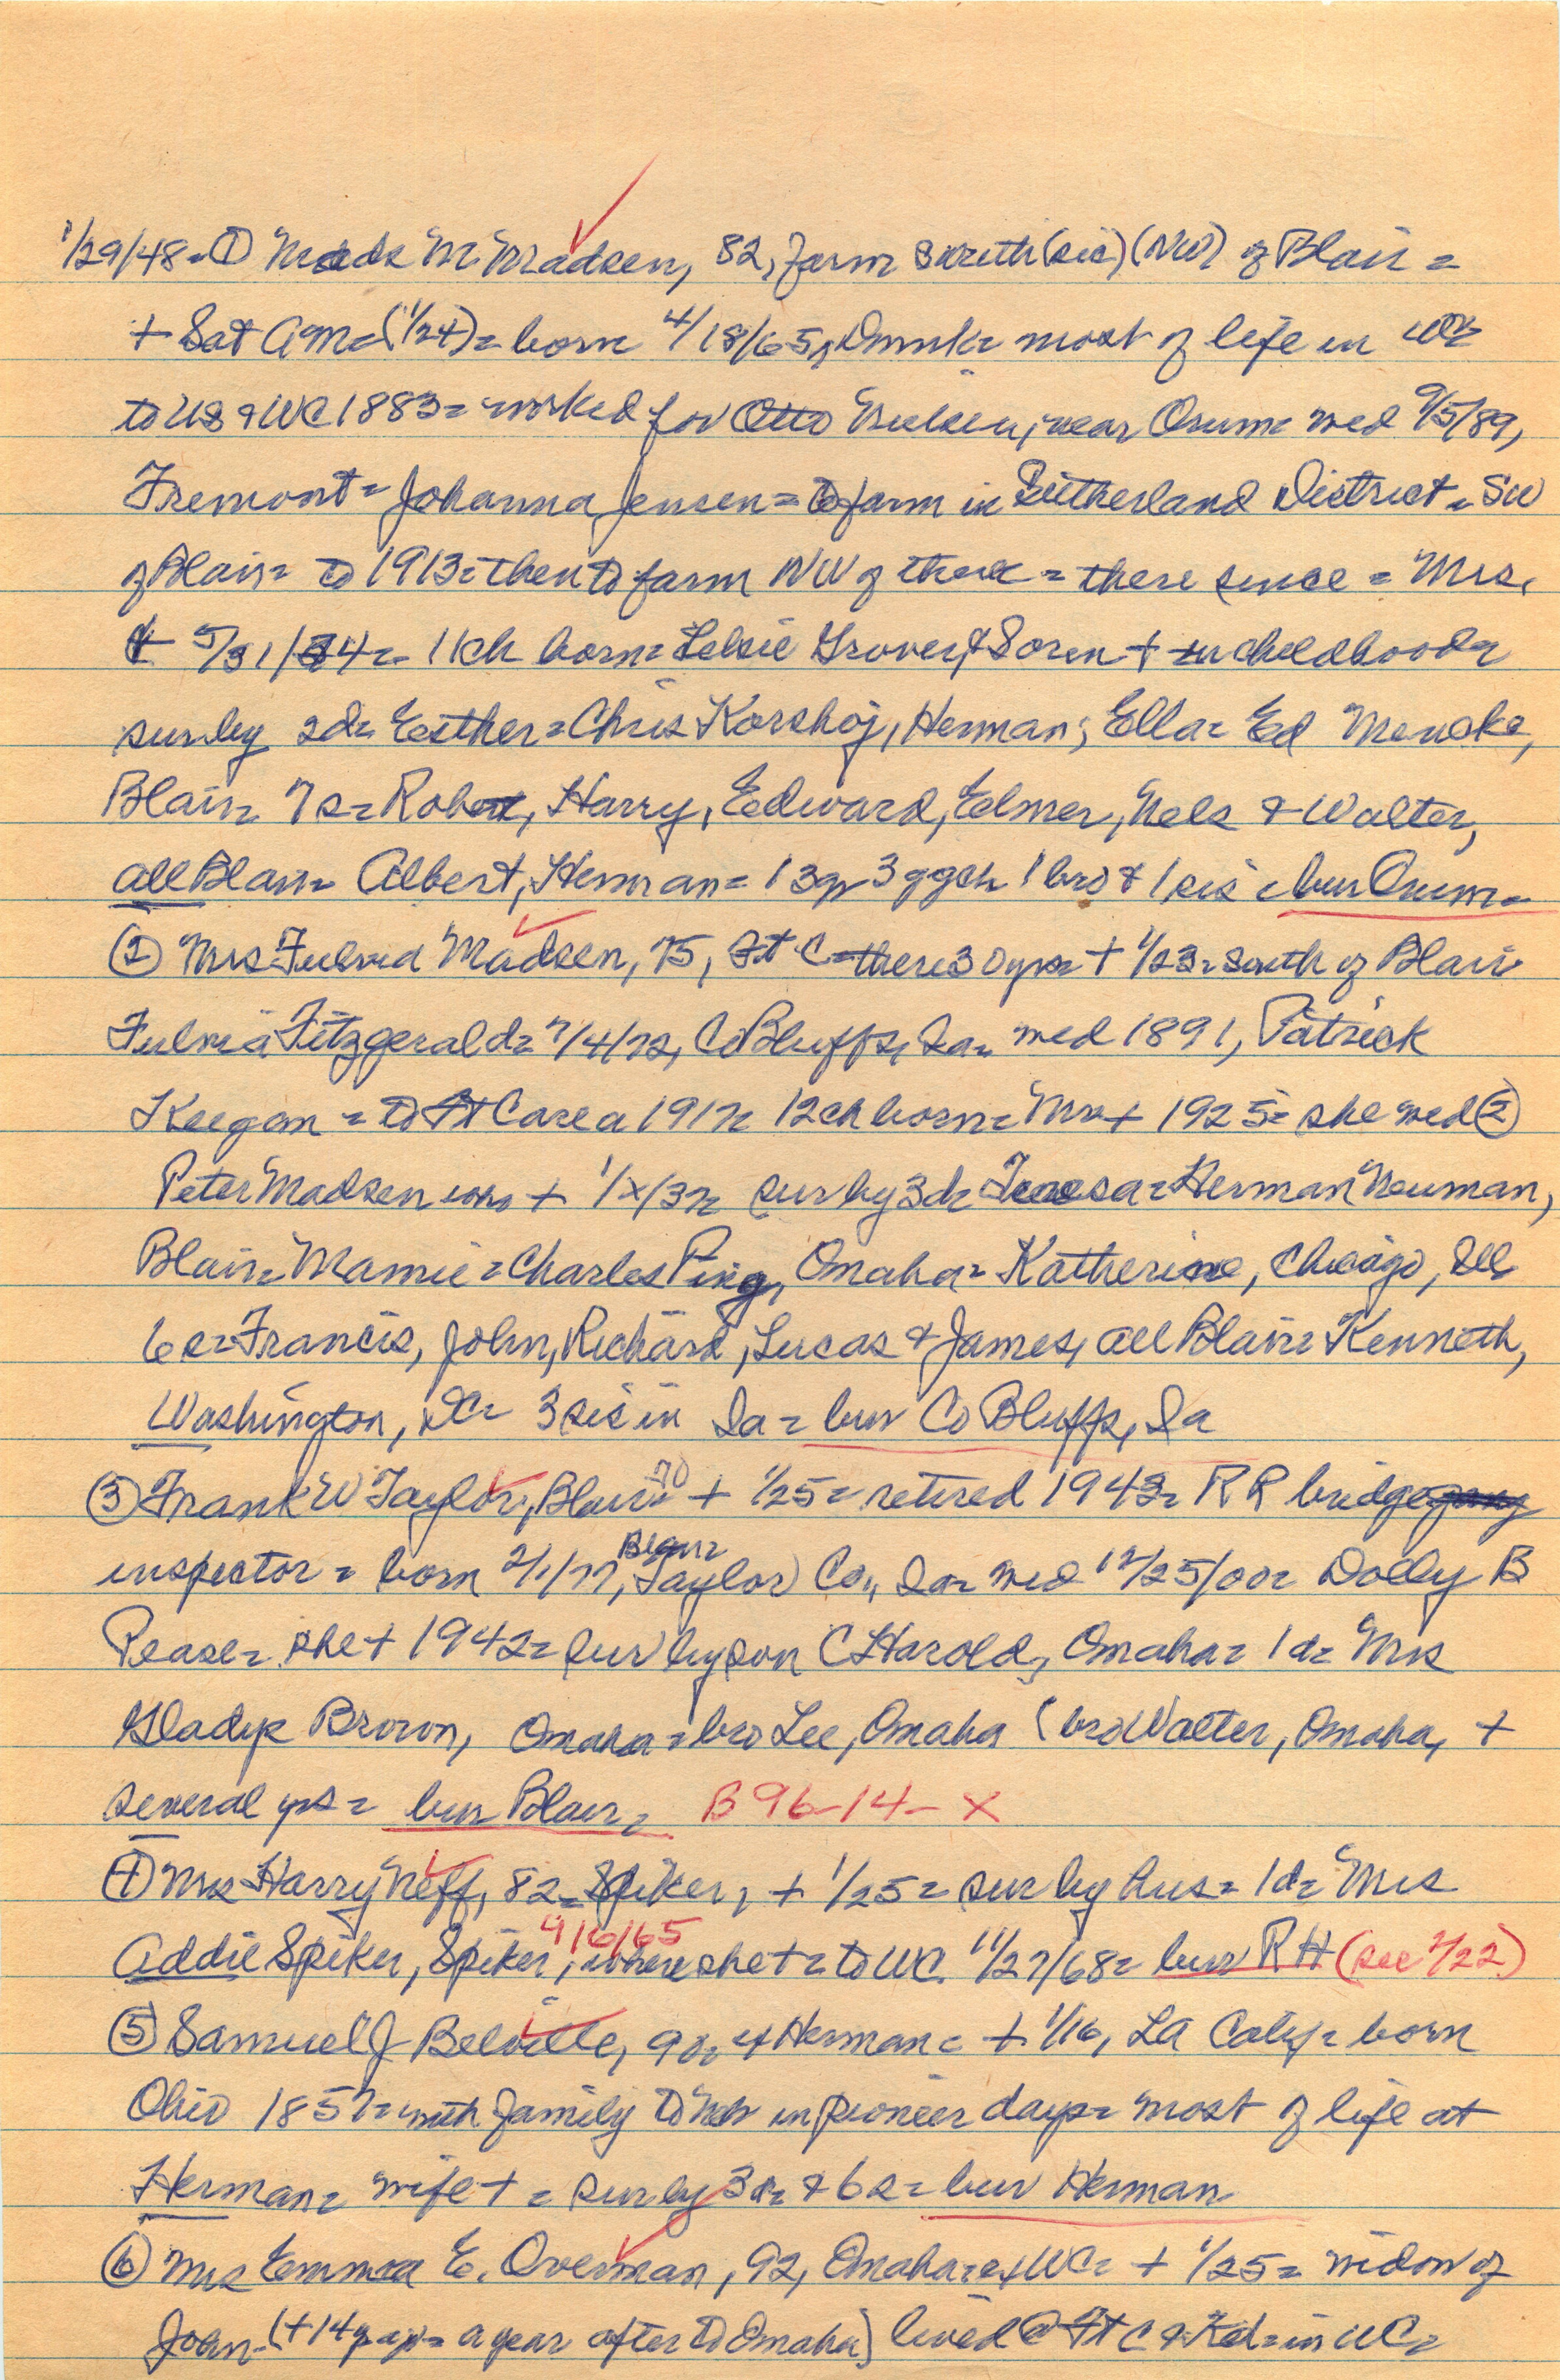 1/29/48 = ① Mads M Madsen, 82, farm south (sic) (NW) of Blair =
+ Sat AM = (1/24) = born 4/18/65, Dnmk = most of life in WC
to US & WC 1883 = worked for Otto Nielsen, near Orum = wed 9/5/89,
Fremont = Johanna Jensen = to farm in Sutherland District = SW
of Blair = to 1913 = then to farm NW of there = there since = Mrs.
+ 5/31/34 = 11ch born = Lelsie Grover, & Soren + in childhood =
sur by 2d = Esther = Chris Korshoj, Herman; Ella = Ed Mencke,
Blair = 7s = Robert, Harry, Edward, Elmer, Nels & Walter,
all Blair = Albert, Herman = 13gr 3ggch 1 bro & 1 sis = bur Orum =
② Mrs Fulvia Madsen, 75, Ft C = there 30yrs = + 1/23 = south of Blair
Fulvia Fitzgerald = 7/4/72, Co Bluffs, Ia = wed 1891, Patrick
Keegan = to Ft C area 1917 = 12ch born = Mr + 1925 = she wed ②
Peter Madsen who + 1/x/37 = sur by 3d = Teresa = Herman Neuman,
Blair = Mamie = Charles Ping, Omaha = Katherine, Chicago, Ill
6s = Francis, John, Richard, Lucas & James, all Blair = Kenneth,
Washington, DC = 3 sis in Ia = bur Co Bluffs, Ia
③ Frank W Taylor, Blair = 70 + 1/25 = retired 1943 = RR bridge gang
inspector = born 2/1/77, Taylor Co., Ia = wed 12/25/00 = Dolly B
Pease = she + 1942 = sur by son C Harold, Omaha = 1d = Mrs
Gladys Brown, Omaha = bro Lee, Omaha (bro Walter, Omaha, +
several yrs = bur Blair = B 96-14-X
④ Mrs Harry Neff, 82 = Spiker, + 1/25 = sur by hus = 1d = Mrs
Addie Spiker, Spiker, where she + = to WC 11/27/68 = bur RH (see 1/22)
4/6/65
⑤ Samuel J Belville, 90, ex Herman = + 1/16, LA Calif = born
Ohio 1857 = with family to Neb in pioneer days = most of life at
Herman = wife + = sur by 3d = & 6s = bur Herman
⑥ Mrs Emma E. Overman, 92, Omaha = ex WC = + 1/25 = widow of
John = (+ 14y ago = a year after to Omaha) lived @ Ft C & Kd = in WC =